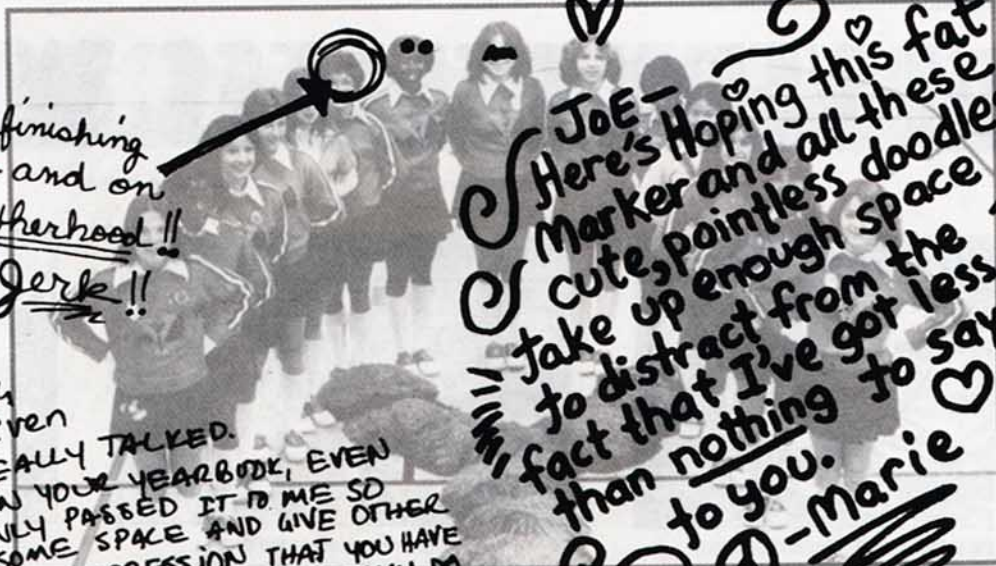 finishing
and on
therhood!!
Jerk!!
ven
EALLY TALKED.
N YOUR YEARBOOK, EVEN
NLY PASSED IT TO ME SO
SOME SPACE AND GIVE OTHER
RESSION THAT YOU HAVE
JOE-
Here's Hoping this fat
Marker and all these
cute, pointless doodle
take up enough space
to distract from the
fact that I've got less
than nothing to say
to you.
-Marie